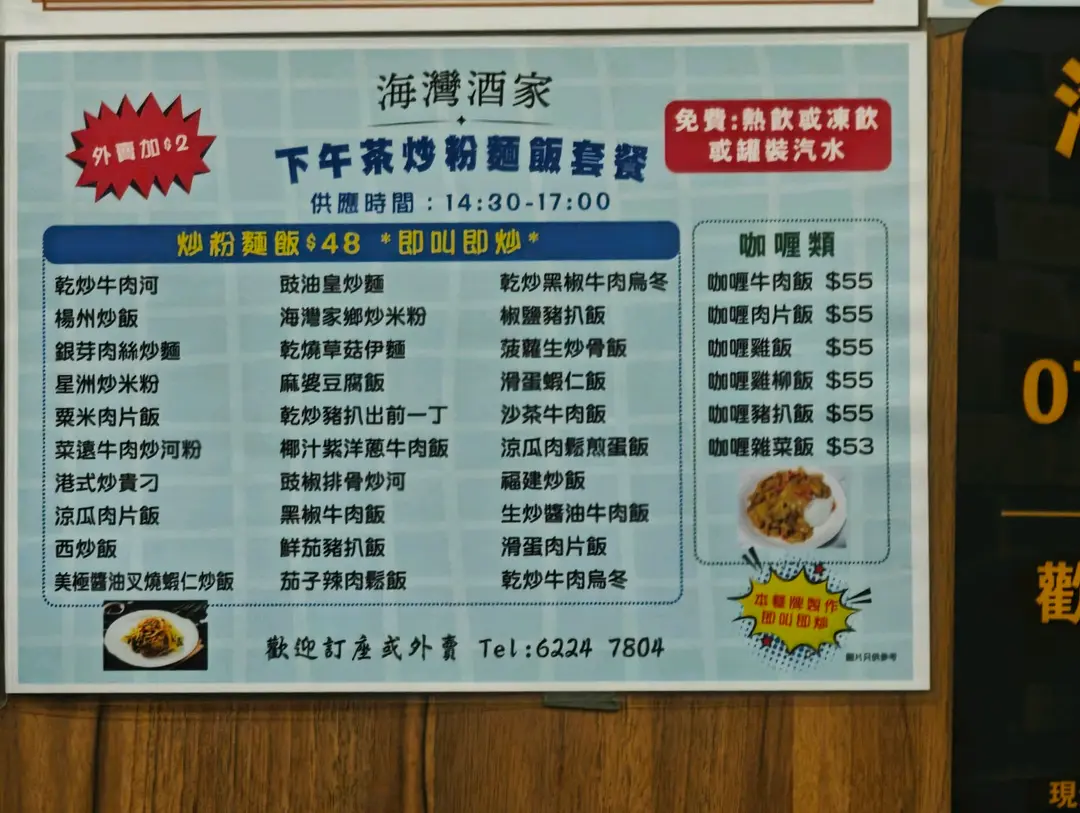 海灣酒家
外賣加$2
下午茶炒粉麵飯套餐
免費:熱飲或凍飲
或罐裝汽水
供應時間：14:30-17:00
炒粉麵飯$48 *即叫即炒*
乾炒牛肉河
楊州炒飯
銀芽肉絲炒麵
星洲炒米粉
粟米肉片飯
菜遠牛肉炒河粉
港式炒貴刁
涼瓜肉片飯
西炒飯
美極醬油叉燒蝦仁炒飯
豉油皇炒麵
海灣家鄉炒米粉
乾燒草菇伊麵
麻婆豆腐飯
乾炒豬扒出前一丁
椰汁紫洋蔥牛肉飯
豉椒排骨炒河
黑椒牛肉飯
鮮茄豬扒飯
茄子辣肉鬆飯
乾炒黑椒牛肉烏冬
椒鹽豬扒飯
菠蘿生炒骨飯
滑蛋蝦仁飯
沙茶牛肉飯
涼瓜肉鬆煎蛋飯
福建炒飯
生炒醬油牛肉飯
滑蛋肉片飯
乾炒牛肉烏冬
咖喱類
咖喱牛肉飯 $55
咖喱肉片飯 $55
咖喱雞飯 $55
咖喱雞柳飯 $55
咖喱豬扒飯 $55
咖喱雜菜飯 $53
即叫即炒
圖片只供參考
歡迎訂座或外賣 Tel:6224 7804
歡
現